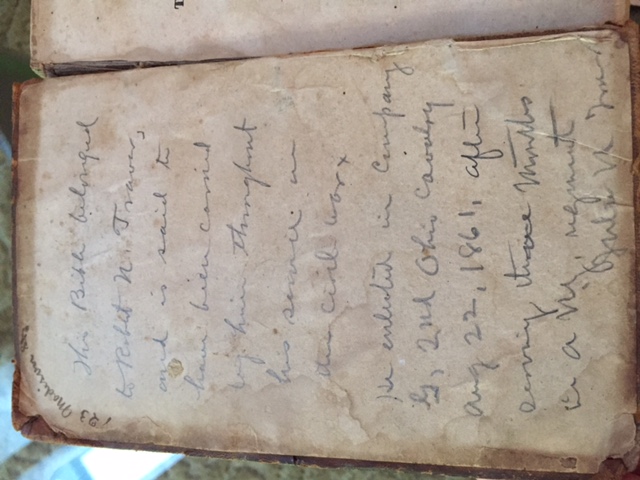 This Bible belonged
to Robt N. Traver,
and is said to
have been carried
by him throughout
his service in
the civil war x
He enlisted in Company
G, 2nd Ohio Cavalry
Aug 22, 1861, after
serving three months
in a regiment
23 Madison
T